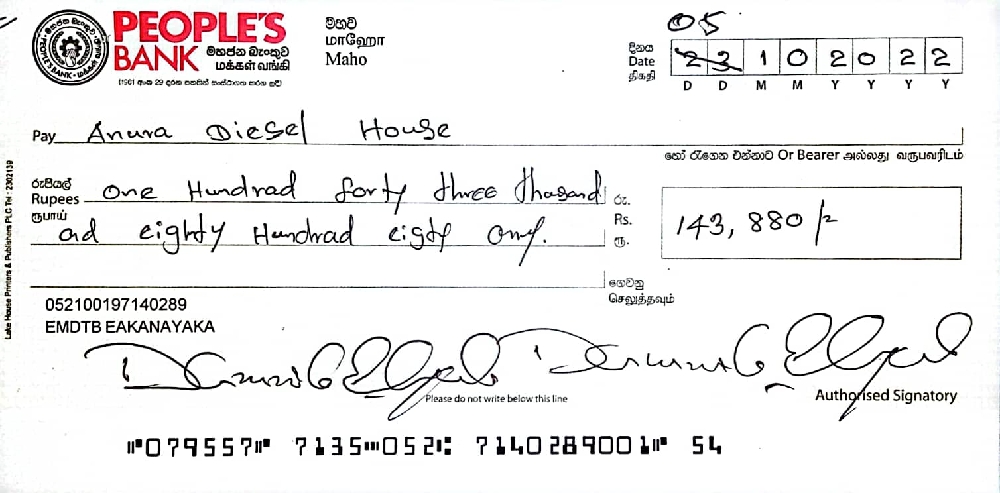 PEOPLE'S
BANK මහජන බැංකුව
மக்கள் வங்கி
(1961 අංක 29 දරන පනතින් සංස්ථාගත කරන ලදි)
මහව
மாஹோ
Maho
05
දිනය
Date
திகதி
23 10 2022
D D M M Y Y Y Y
Pay Anura Diesel House
හෝ රැගෙන එන්නාට Or Bearer அல்லது வருபவரிடம்
රුපියල්
Rupees
ரூபாய்
One Hundrad forty three thasand
ad eighty Hundrad eigty only.
රු.
Rs.
ரூ.
143, 880/-
ගෙවනු
செலுத்தவும்
052100197140289
EMDTB EAKANAYAKA
Please do not write below this line
Authorised Signatory
⑈079557⑈ 7135⑉052⑆ 7140289001⑈ 54
Lake House Printers & Publishers PLC Tel : 2302139